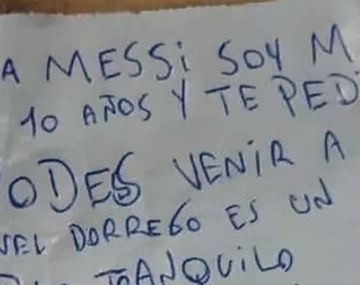 A MESSi SOY M
10 AÑOS Y TE PED
ODES VENiR A
UEL DORREGO ES UN
TRANQUiLO